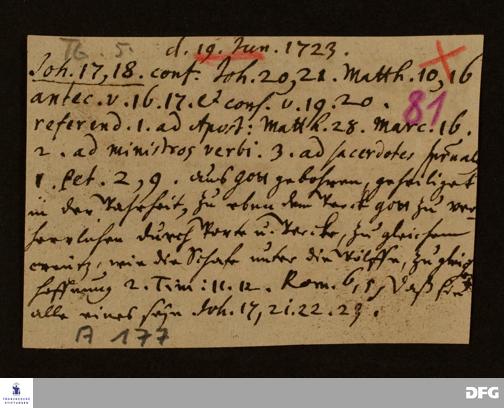 TG. 5. d. 19. Jun. 1723.
Joh. 17, 18. conf. Joh. 20, 21. Matth. 10, 16
antec. v. 16. 17. & conf. v. 19. 20. 81
referend. 1. ad Apost: Matth. 28. Marc. 16.
2. ad ministros verbi. 3. ad sacerdotes
1. Pet. 2, 9. aus Gott gebohren, geheiliget
in der Wahrheit, zu eben dem Werck Gott zu ver
herrlichen durch Worte u. Wercke, zu gleichem
creutz, wie die Schafe unter die Wölffe, zu gleich
Hoffnung 2. Tim: 11. 12. Rom. 6, 5. daß sie
alle eines seyn Joh. 17, 21. 22. 23.
A 177
FRANCKESCHE STIFTUNGEN DFG